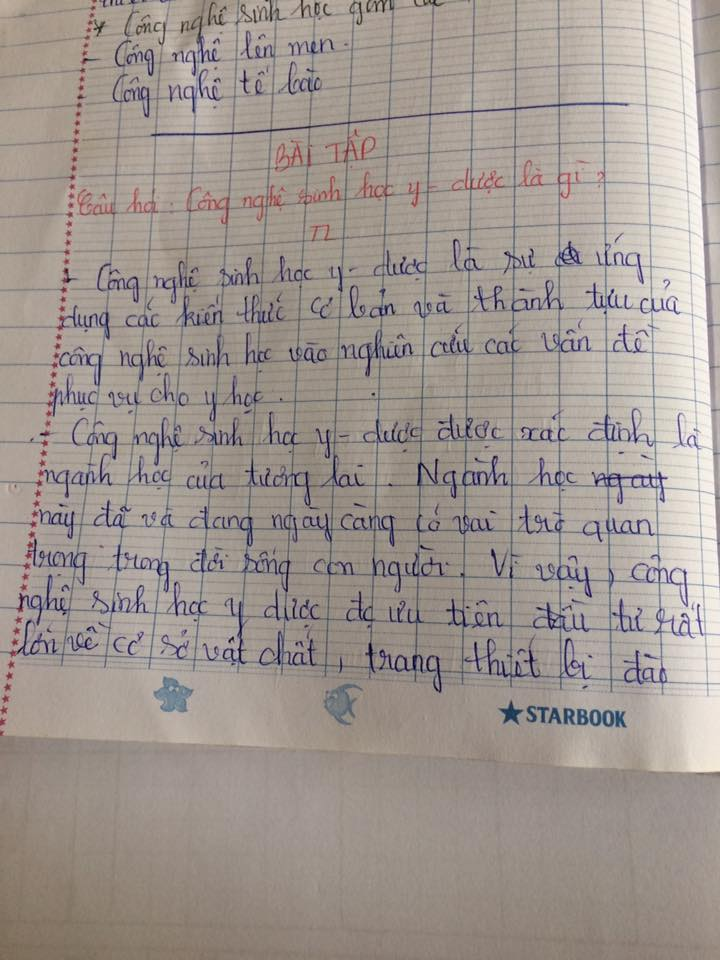 * Công nghệ sinh học gồm các
- Công nghệ lên men.
- Công nghệ tế bào
BÀI TẬP
Câu hỏi : Công nghệ sinh học y - dược là gì ?
TL
- Công nghệ sinh học y - dược là sự ứng
dụng các kiến thức cơ bản và thành tựu của
công nghệ sinh học vào nghiên cứu các vấn đề
phục vụ cho y học.
- Công nghệ sinh học y - dược được xác định là
ngành học của tương lai. Ngành học ngày
này đã và đang ngày càng có vai trò quan
trọng trong đời sống con người. Vì vậy, công
nghệ sinh học y dược đc ưu tiên đầu tư rất
lớn về cơ sở vật chất, trang thiết bị đào
★STARBOOK